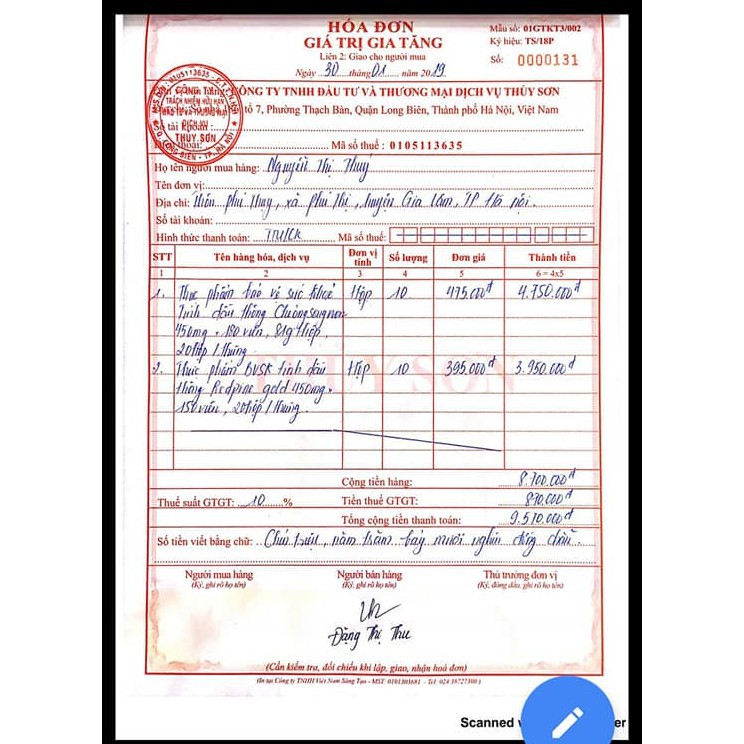 HÓA ĐƠN
GIÁ TRỊ GIA TĂNG
Liên 2: Giao cho người mua
Ngày 30 tháng 01 năm 2019
Mẫu số: 01GTKT3/002
Ký hiệu: TS/18P
Số: 0000131
CÔNG TY TNHH ĐẦU TƯ VÀ THƯƠNG MẠI DỊCH VỤ THỦY SƠN
tổ 7, Phường Thạch Bàn, Quận Long Biên, Thành phố Hà Nội, Việt Nam
Số tài khoản:
Mã số thuế: 0105113635
TRÁCH NHIỆM HỮU HẠN
DỊCH VỤ
THUỶ SƠN
Họ tên người mua hàng: Nguyễn Thị Thuý
Tên đơn vị:
Địa chỉ: Thôn Phú Thụy, xã Phú Thị, huyện Gia Lâm, TP Hà Nội.
Số tài khoản:
Hình thức thanh toán: TM/CK Mã số thuế:
STT Tên hàng hóa, dịch vụ Đơn vị tính Số lượng Đơn giá Thành tiền
1 2 3 4 5 6 = 4x5
1. Thực phẩm bảo vệ sức khoẻ Hộp 10 475.000đ 4.750.000đ
Tinh dầu thông
450mg * 180 viên, 81g/hộp,
20hộp/thùng
2. Thực phẩm BVSK tinh dầu Hộp 10 395.000đ 3.950.000đ
thông Redpine gold 450mg *
150 viên, 20hộp/thùng.
THUỶ SƠN
Cộng tiền hàng: 8.700.000đ
Thuế suất GTGT: 10 % Tiền thuế GTGT: 870.000đ
Tổng cộng tiền thanh toán: 9.570.000đ
Số tiền viết bằng chữ: Chín triệu, năm trăm bảy mươi nghìn đồng chẵn
Người mua hàng Người bán hàng Thủ trưởng đơn vị
(Ký, ghi rõ họ tên) (Ký, ghi rõ họ tên) (Ký, đóng dấu, ghi rõ họ tên)
Đặng Thị Thu
(Cần kiểm tra, đối chiếu khi lập, giao, nhận hoá đơn)
(In tại Công ty TNHH Việt Nam Sáng Tạo - MST: 0101303681 - Tel: 024 38727300)
Scanned